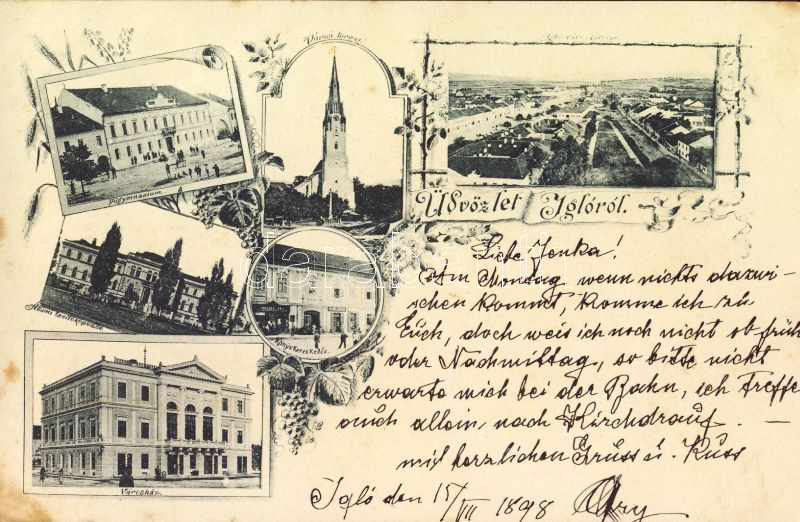 Városi torony
Igló
Főgymnasium
Üdvözlet Iglóról.
Állami tanitóképezde
Könyvkereskedés.
Városház.
Liebe Jenka!
Am Montag wenn nichts dazwi-
schen kommt, komme ich zu
Euch, doch weis ich noch nicht ob früh
oder Nachmittag, so bitte nicht
erwarte mich bei der Bahn, ich treffe
auch allein, nach Kirchdrauf.
mit herzlichen Gruss u. Kuss
Igló den 15/VII 1898